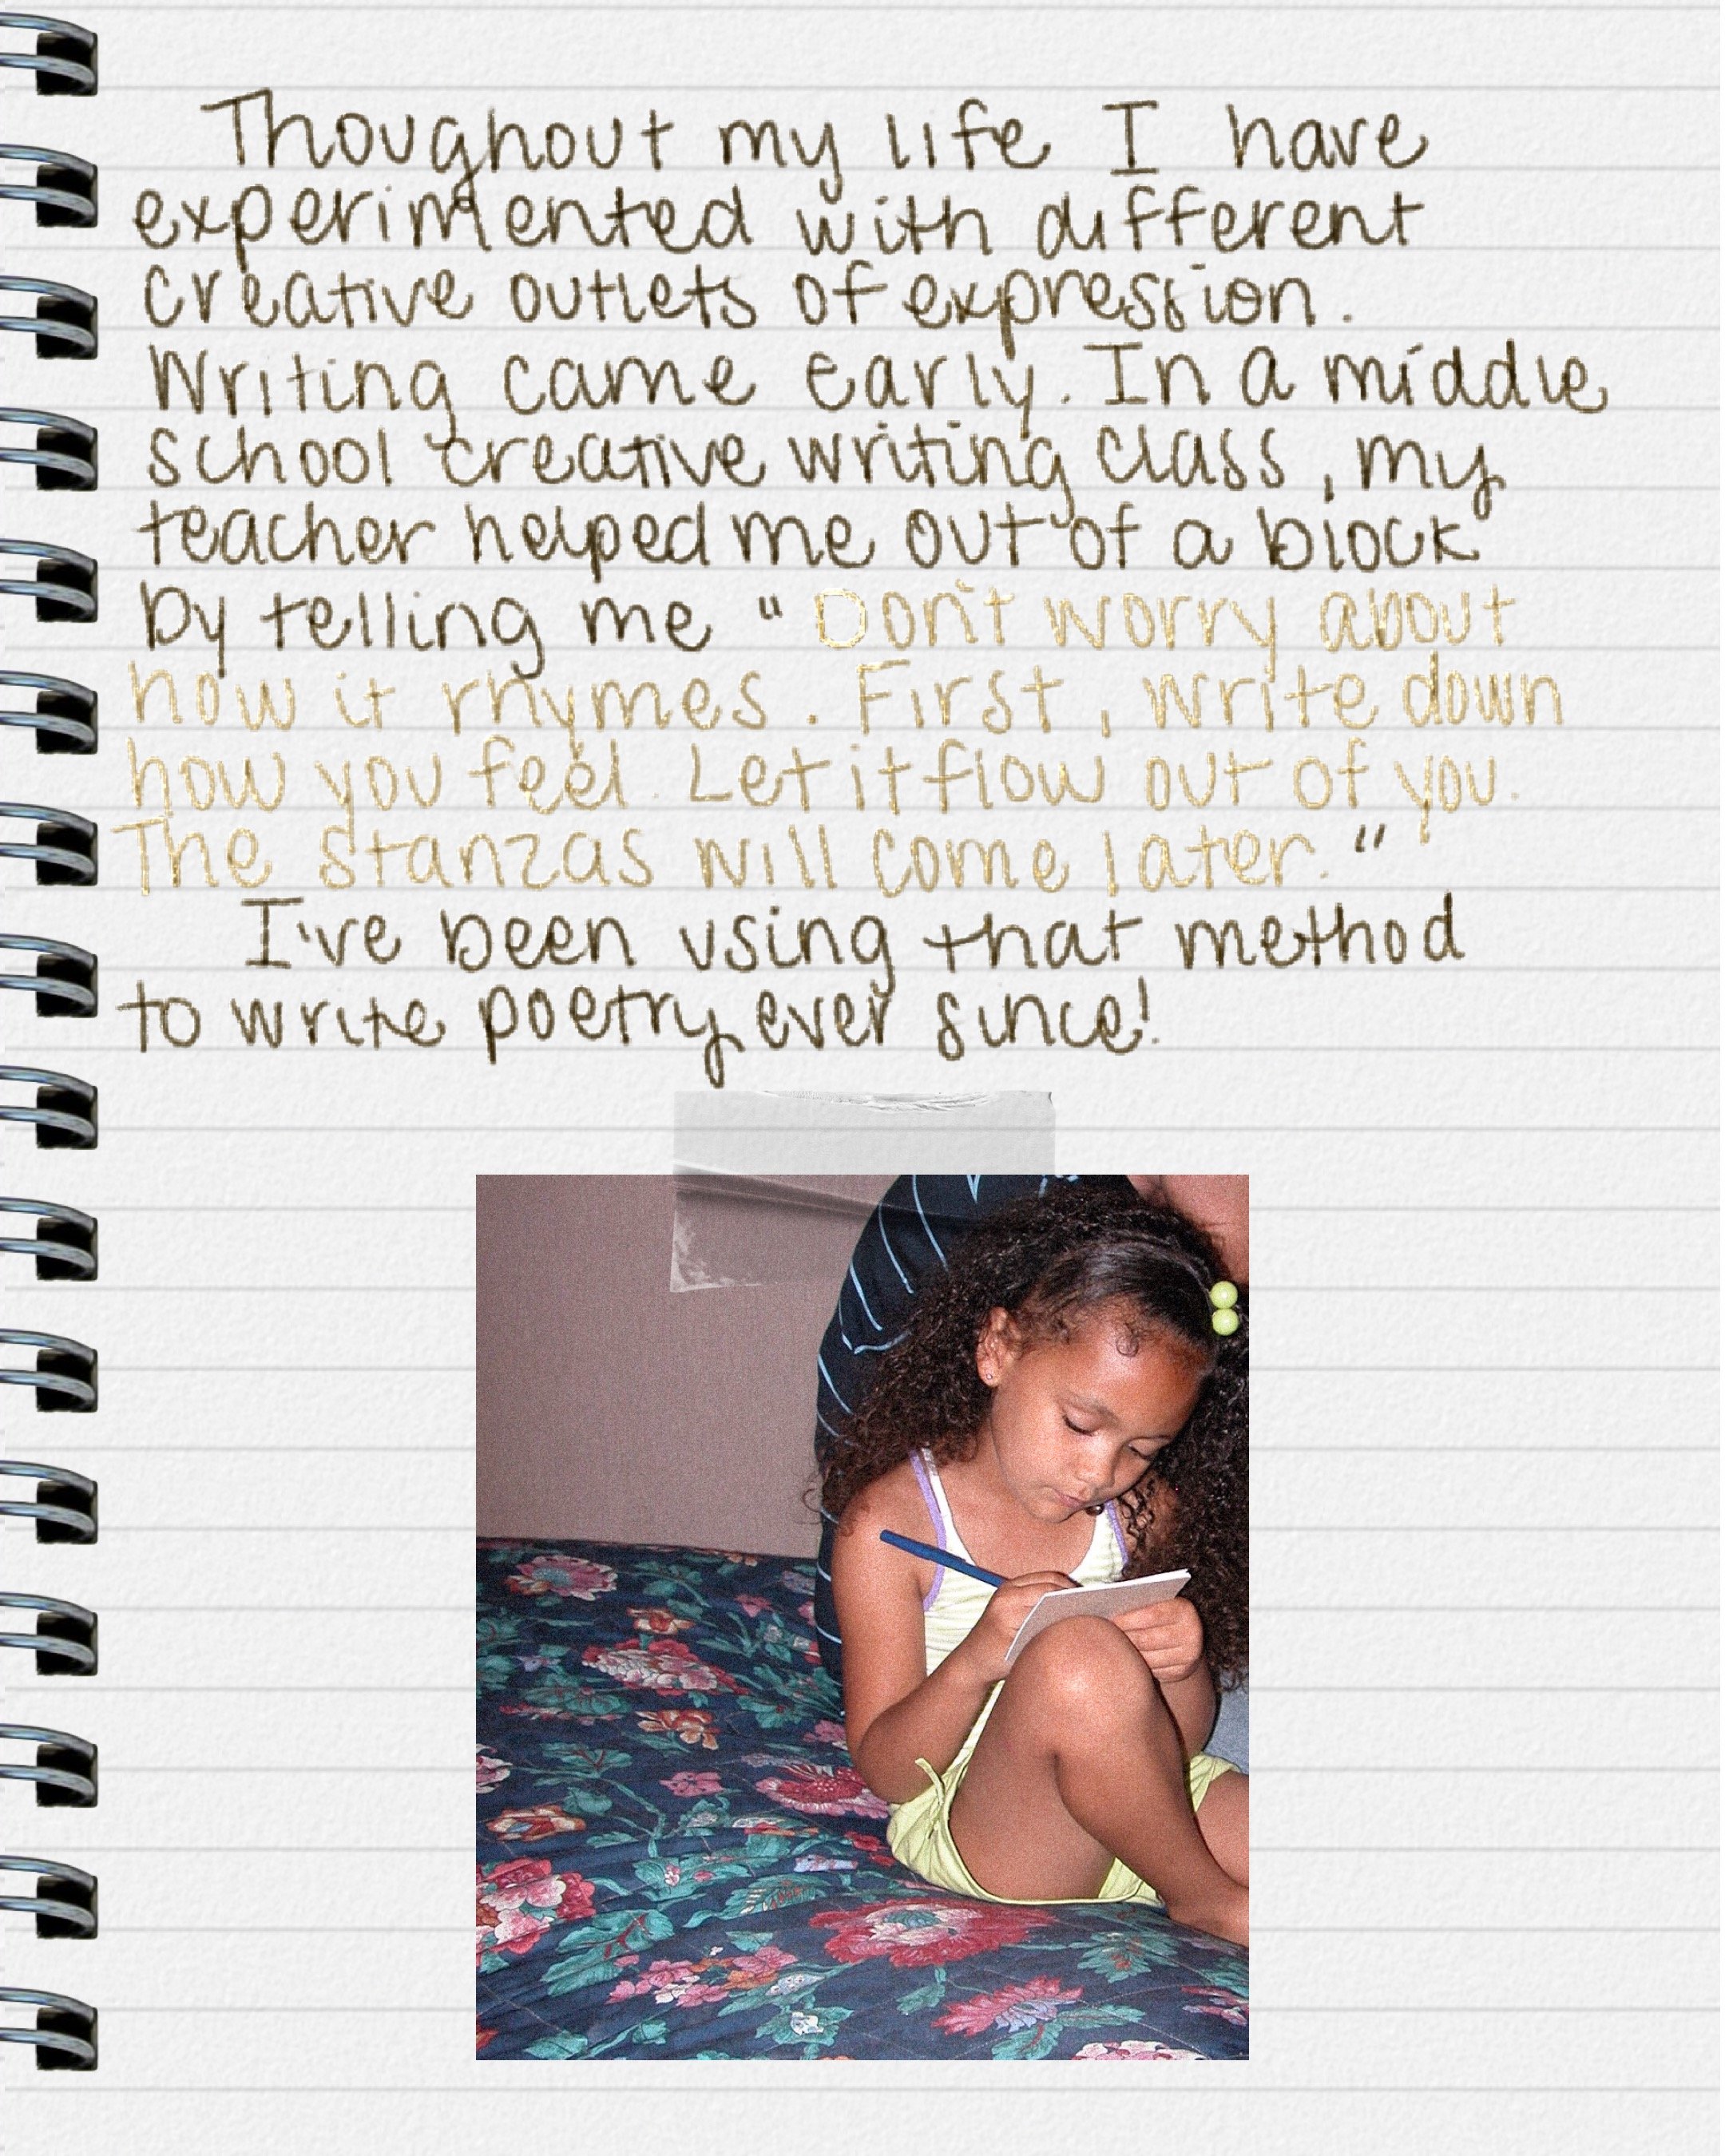 Thoughout my life I have
experimented with different
creative outlets of expression.
Writing came early. In a middle
school creative writing class, my
teacher helped me out of a block
by telling me "Don't worry about
how it rhymes. First, write down
how you feel. Let it flow out of you.
The stanzas will come later."
I've been using that method
to write poetry ever since!